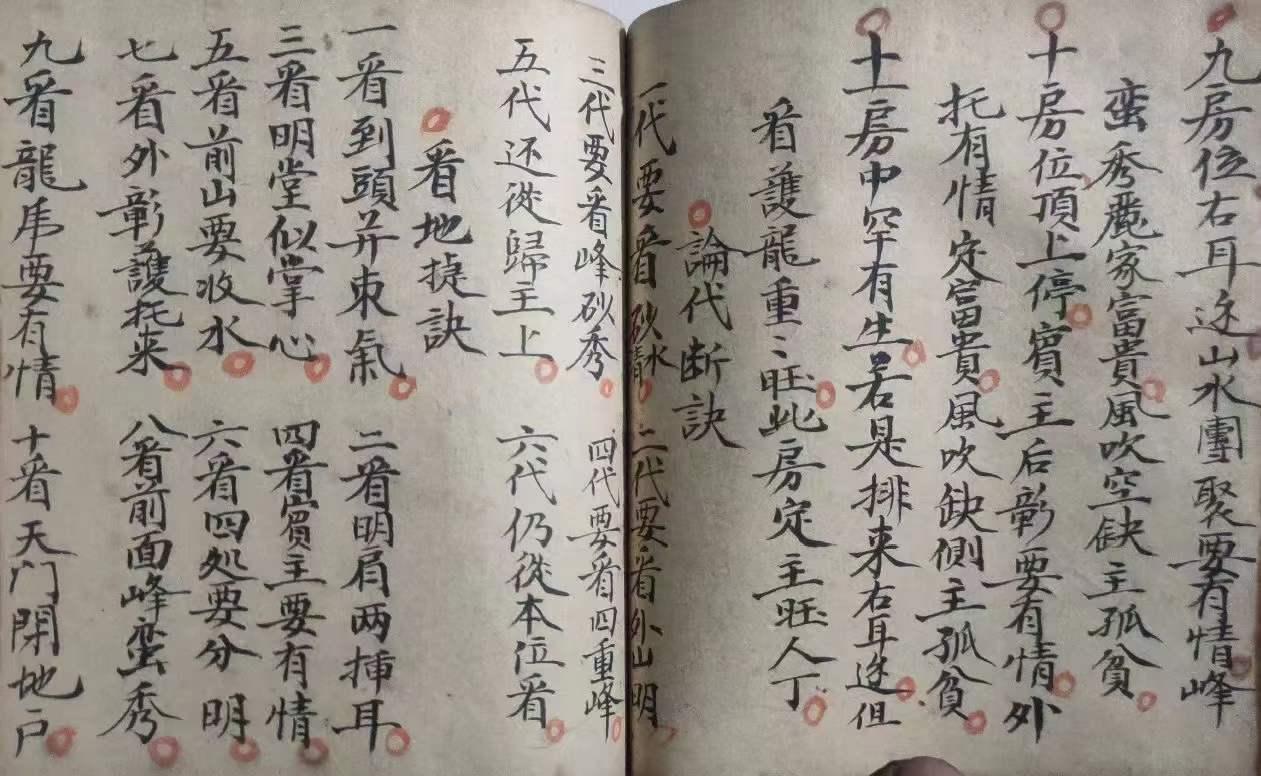 九房位右耳边山水團聚要有情峰
蛮秀麗家富貴風吹空缺主孤貧
十房位頂上停賓主后彰要有情外
托有情定富貴風吹缺側主孤貧
十一房中罕有生若是排来右耳边但
看護龍重〻旺此房定主旺人丁
論代断訣
一代要看砂水情二代要看外山明
三代要看峰砂秀四代要看四重峰
五代还從歸主上六代仍從本位看
看地捷訣
一看到頭并束氣二看明肩两揷耳
三看明堂似掌心四看賓主要有情
五看前山要收水六看四処要分明
七看外彰護托来八看前面峰蛮秀
九看龍虎要有情十看天门閉地户